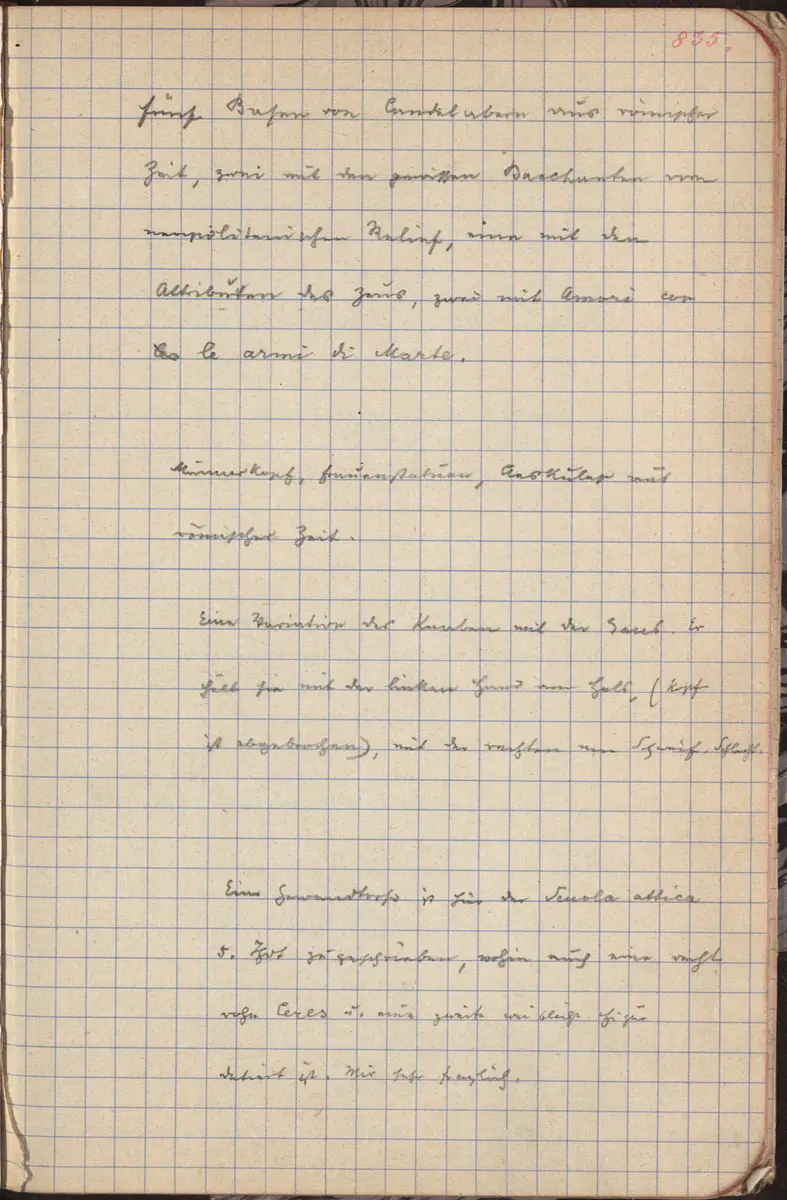 835.
fünf Basen von Candelabern aus römischer
Zeit, zwei mit den gewissen Bacchanten vom
neapolitanischen Relief, eine mit den
Attributen des Zeus, zwei mit Amori con
le armi di Marte.
Männerkopf, Frauenstatuen, Aeskulap aus
römischer Zeit.
Eine Variation des Knaben mit der Gans. Er
hält sie mit der linken Hand am Hals, (Kopf
ist abgebrochen), mit der rechten am Schweif. Schlecht.
Ein Gewandtorso ist hier der Scuola attica
5. Jhdt zugeschrieben, wohin auch eine recht
rohe Ceres u. eine zweite weibliche Figur
datiert ist. Mir sehr fraglich.